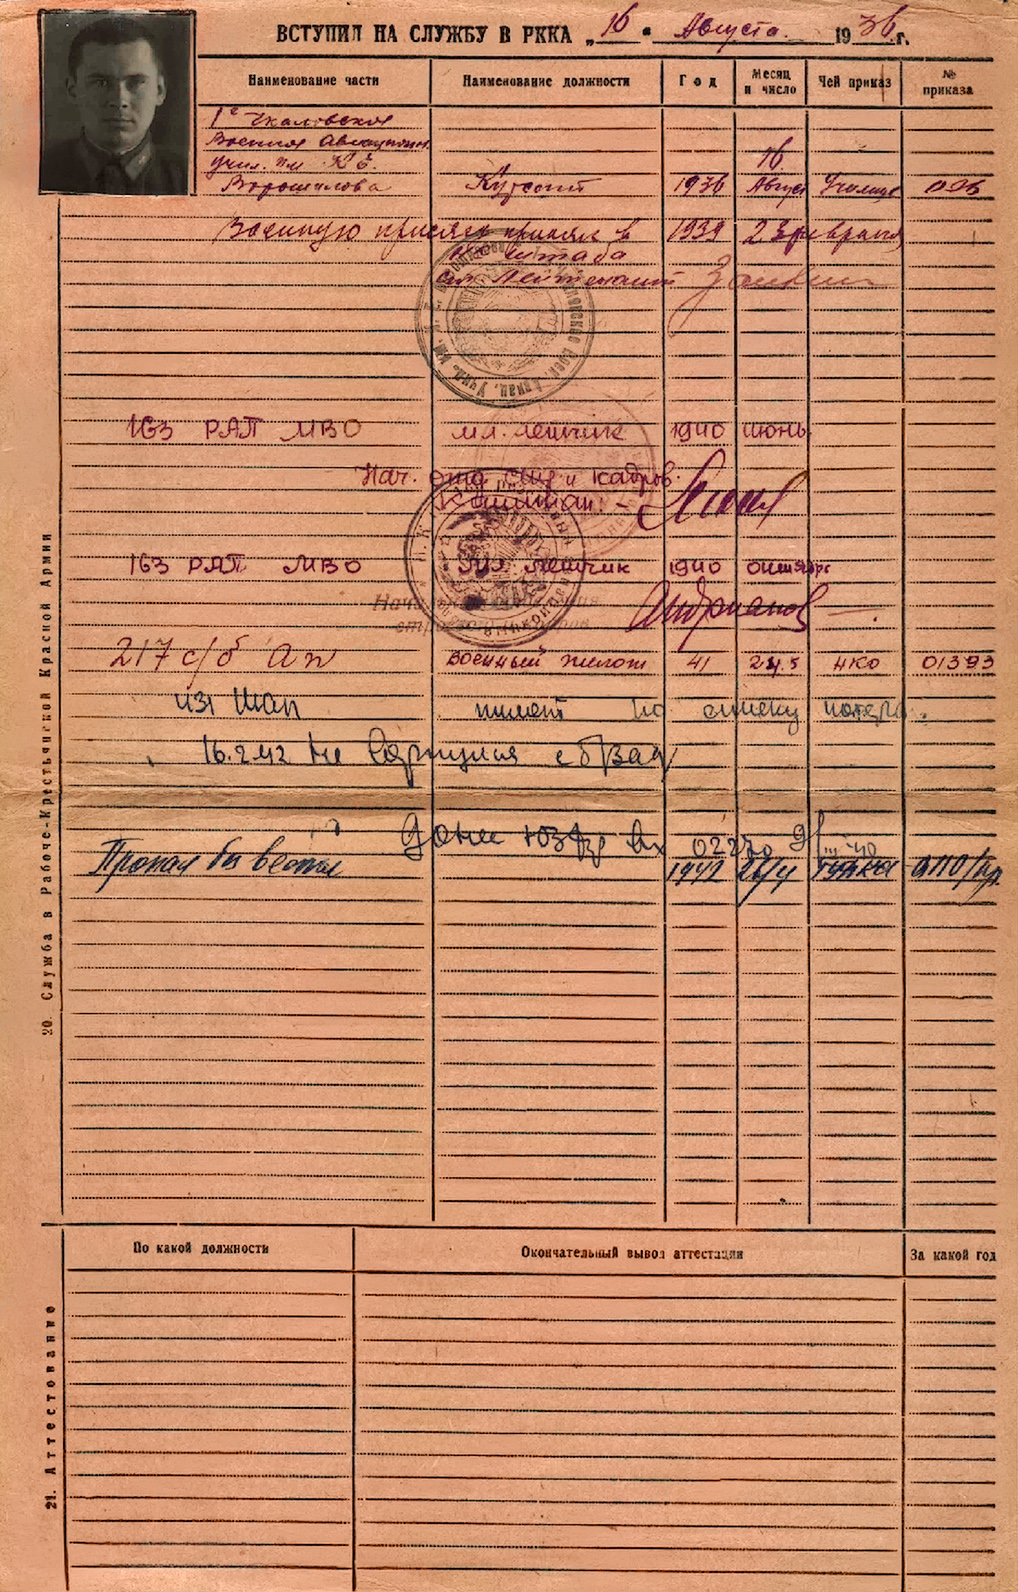 ВСТУПИЛ НА СЛУЖБУ В РККА „16" Августа 1936 г.
Наименование части Наименование должности Год Месяц и число Чей приказ № приказа
1е Чкаловское
Военная Авиационн.
учил. им К. Е.
Ворошилова Курсант 1936 16 Август Училище
Военную присягу принял в 1939 23 февраля
штаба
ст. Лейтенант
163 РАП МВО мл. летчик 1940 июнь
Нач. отд. и кадров.
Капитан. -
163 РАП МВО мл летчик 1940 октябрь
Андрианов
217 с/б ап военный пилот 41 24.5 НКО 01393
пилот по списку потерь.
16.2.42 не вернулся с б/зад
Донес ЮЗФр Вх 02270
Пропал без вести 1942 26/4
20. Служба в Рабоче-Крестьянской Красной Армии
По какой должности Окончательный вывод аттестации За какой год
21. Аттестование